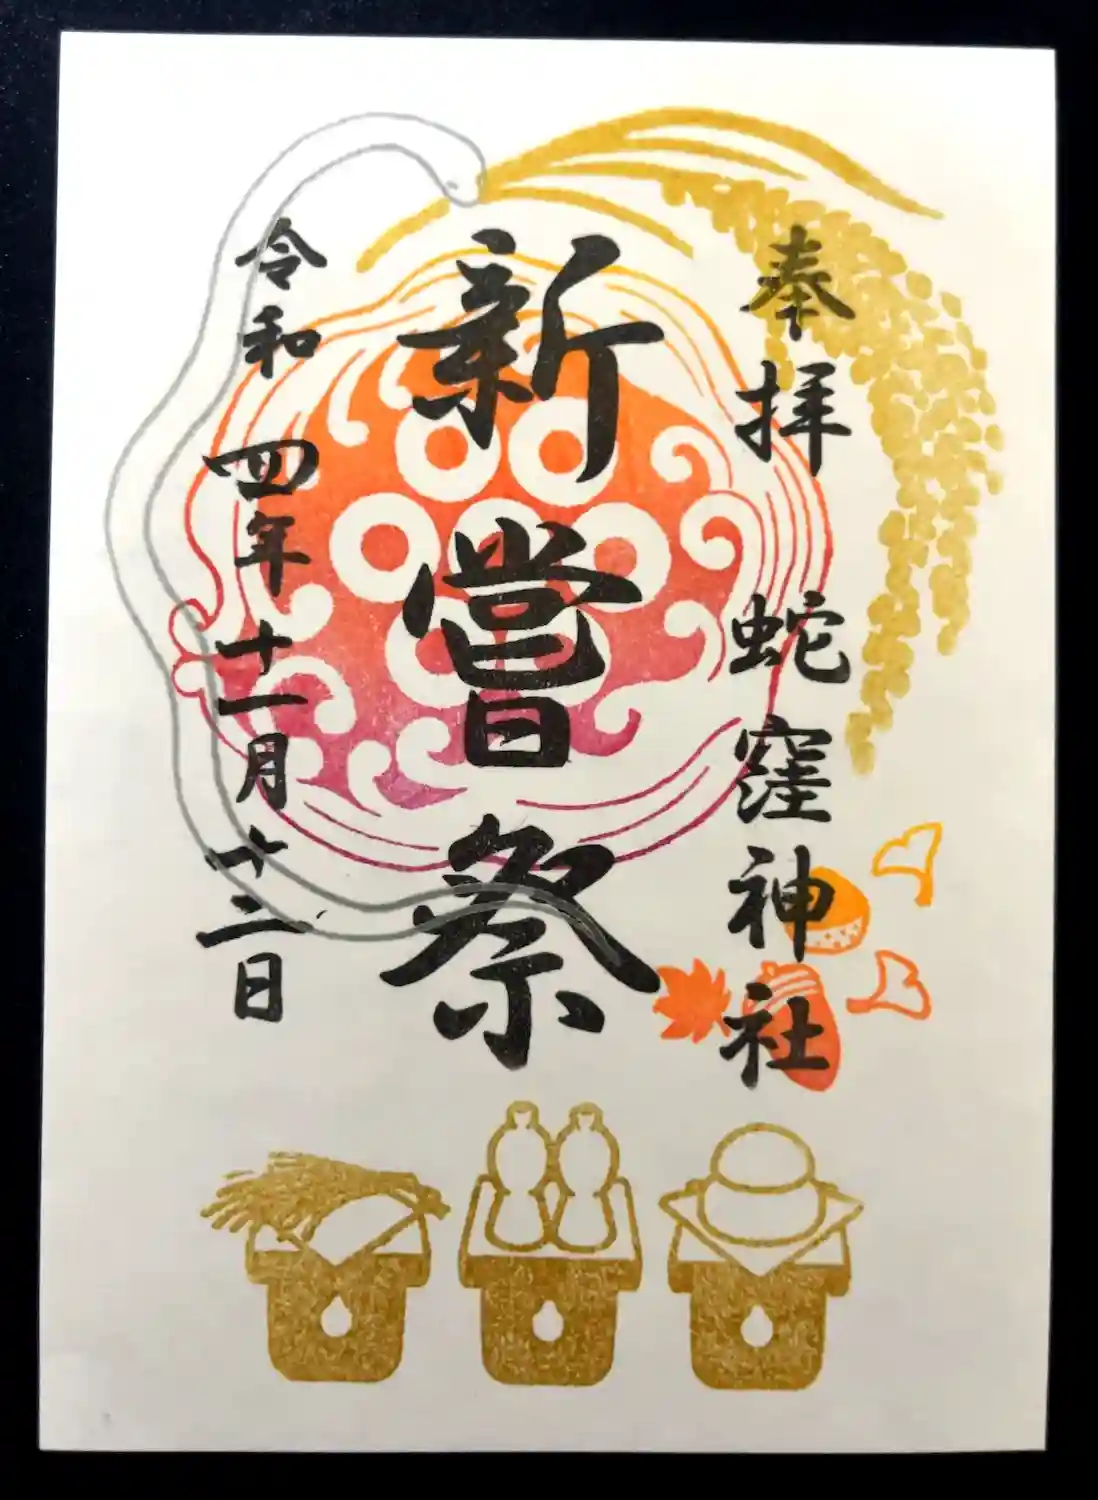 奉拝 蛇窪神社
新嘗祭
令和四年十一月廿二日